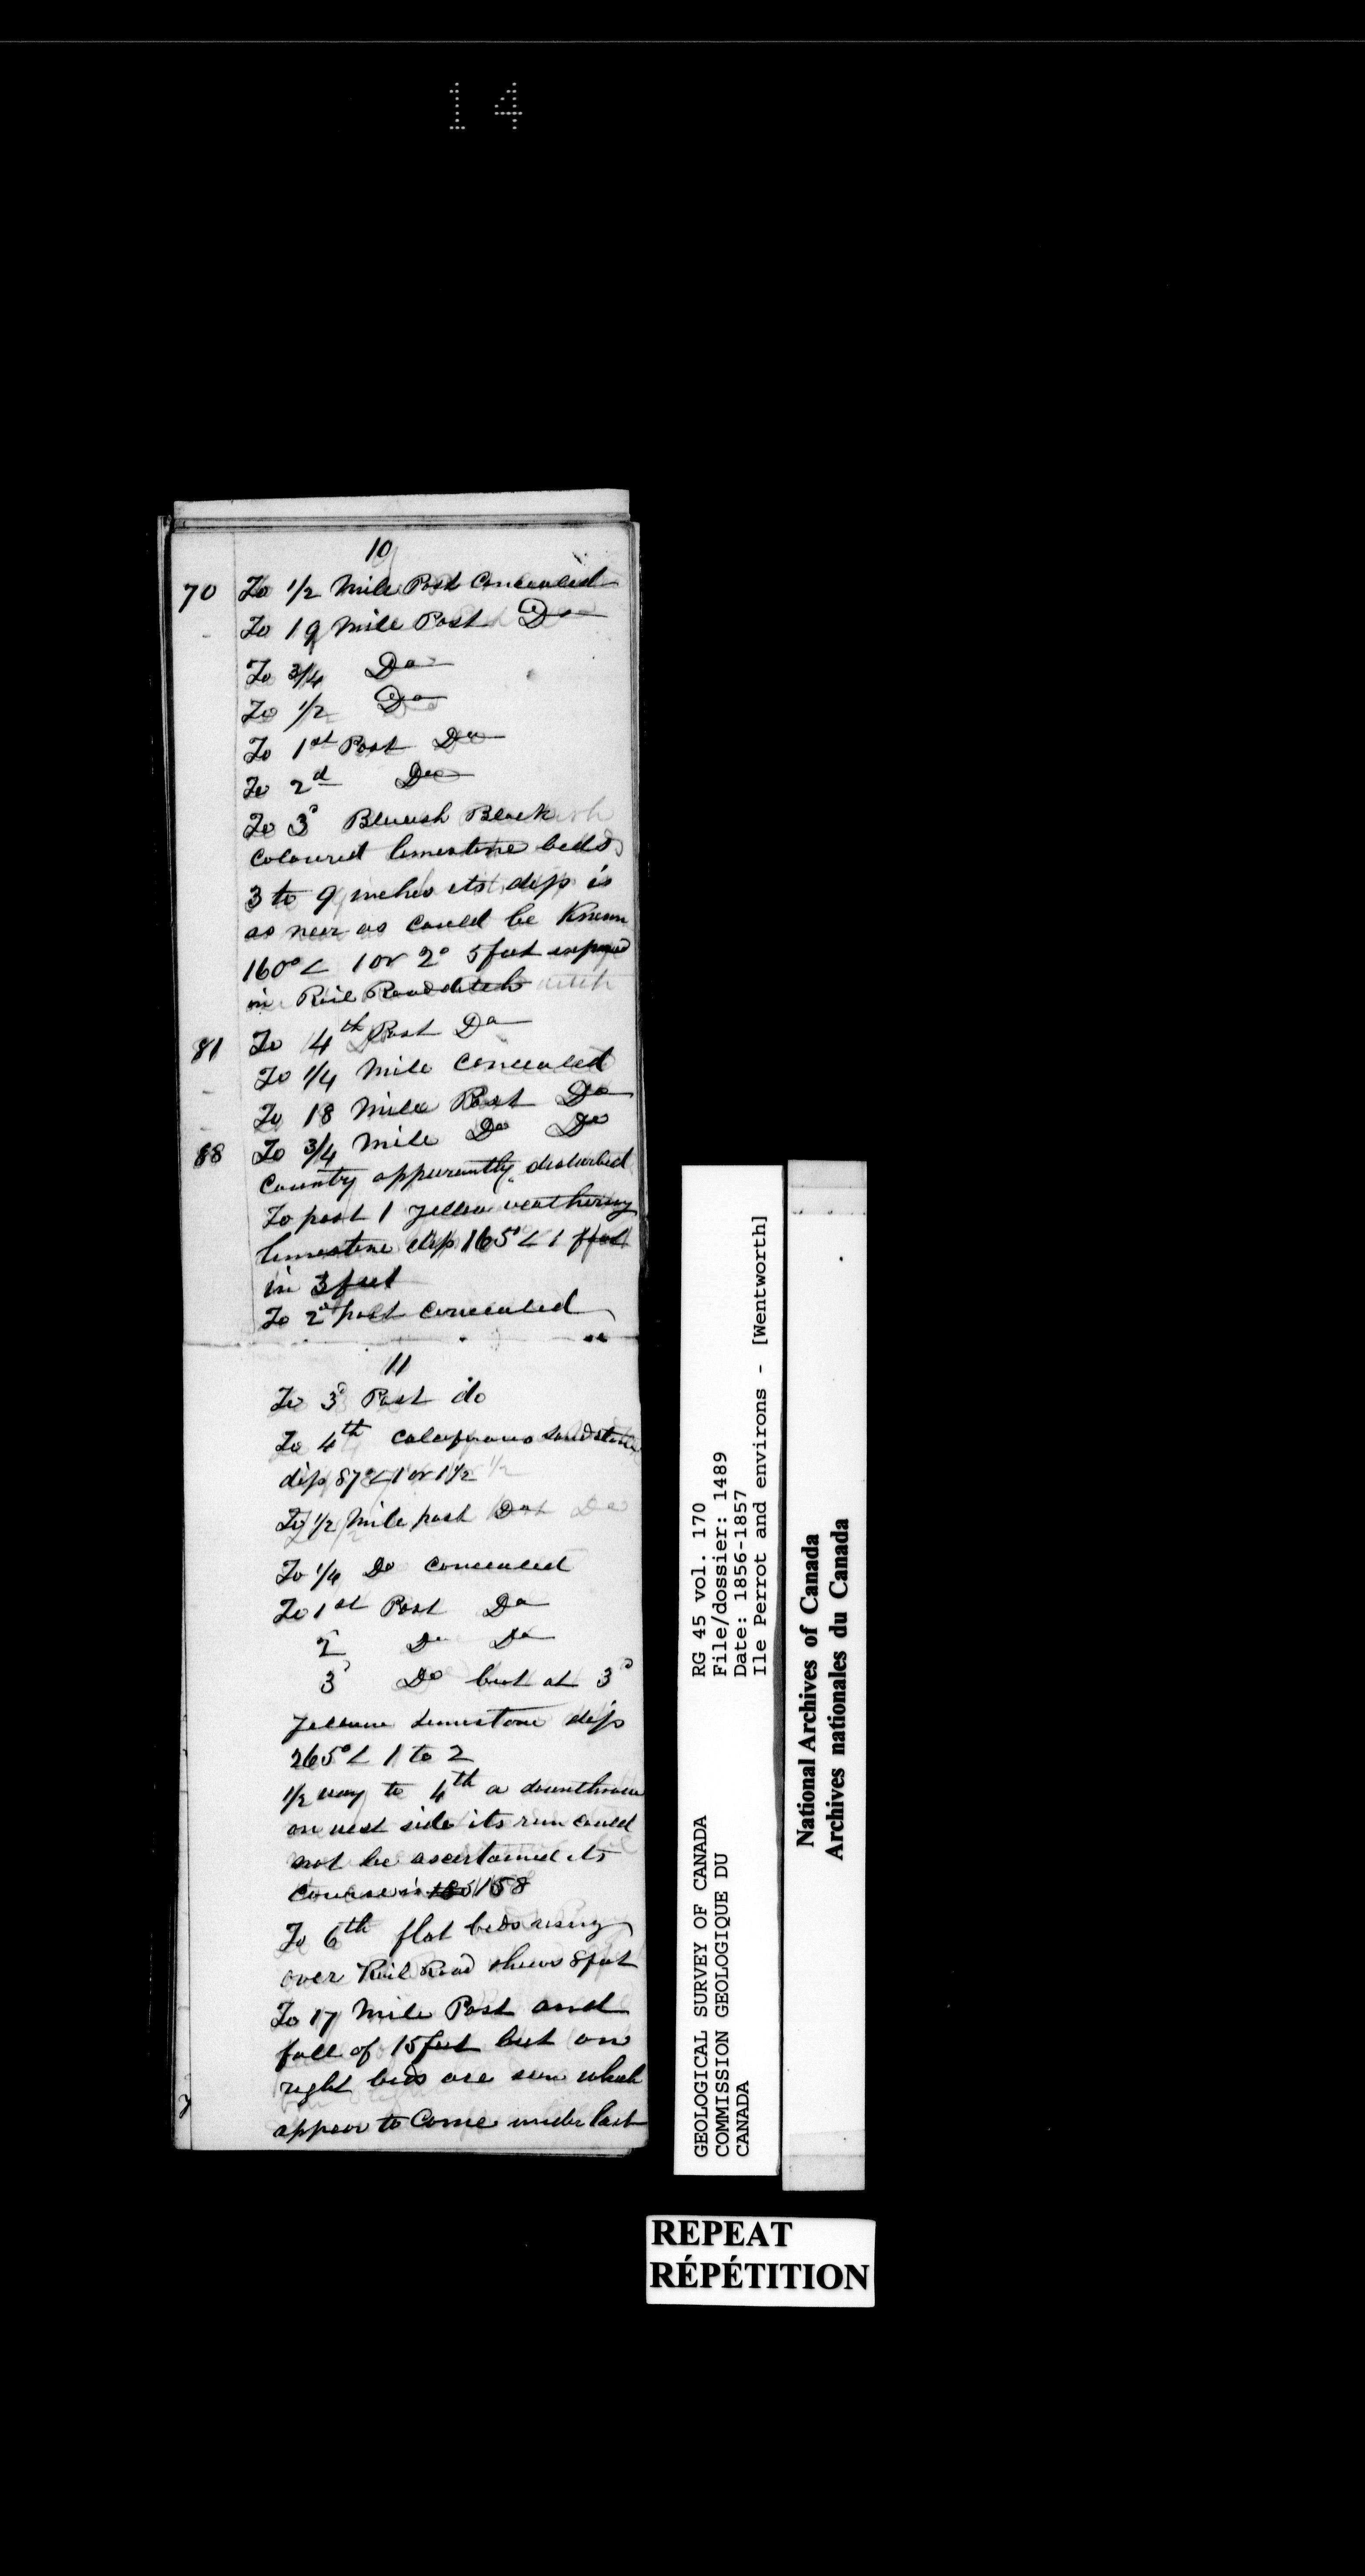 14
10
70 To 1/2 Mile Post Concealed
- To 19 Mile Post Do
To 3/4 Do
To 1/2 Do
To 1st Post Do
To 2d Do
To 3d Blueish Black
coloured limestone beds
3 to 9 inches its dip is
as near as could be Known
160° < 1 or 2° 5 feet exposed
in Rail Road ditch
81 To 4th Post Do
- To 1/4 Mile Concealed
- To 18 Mile Post Do
88 To 3/4 Mile Do Do
County appurantly disturbed
To post 1 yellow weathering
limestone dip 165° < 1 foot
in 3 feet
To 2d post concealed
11
To 3d Post do
To 4th sandstone
dip 87° < 1 or 1 1/2
To 1/2 Mile post Do
To 1/4 Do concealed
To 1st Post Do
2 Do Do
3d Do but at 3d
limestone dip
265° < 1 to 2
1/2 way to 4th a downthrow
on west side its run could
not be ascertained its
course is 158
To 6th flat beds rising
over Rail Road shews 8 feet
To 17 Mile Post and
fall of 15 feet but on
right beds are seen which
appear to Come under last
GEOLOGICAL SURVEY OF CANADA
COMMISSION GEOLOGIQUE DU
CANADA
RG 45 vol. 170
File/dossier: 1489
Date: 1856-1857
Ile Perrot and environs - [Wentworth]
National Archives of Canada
Archives nationales du Canada
REPEAT
RÉPÉTITION